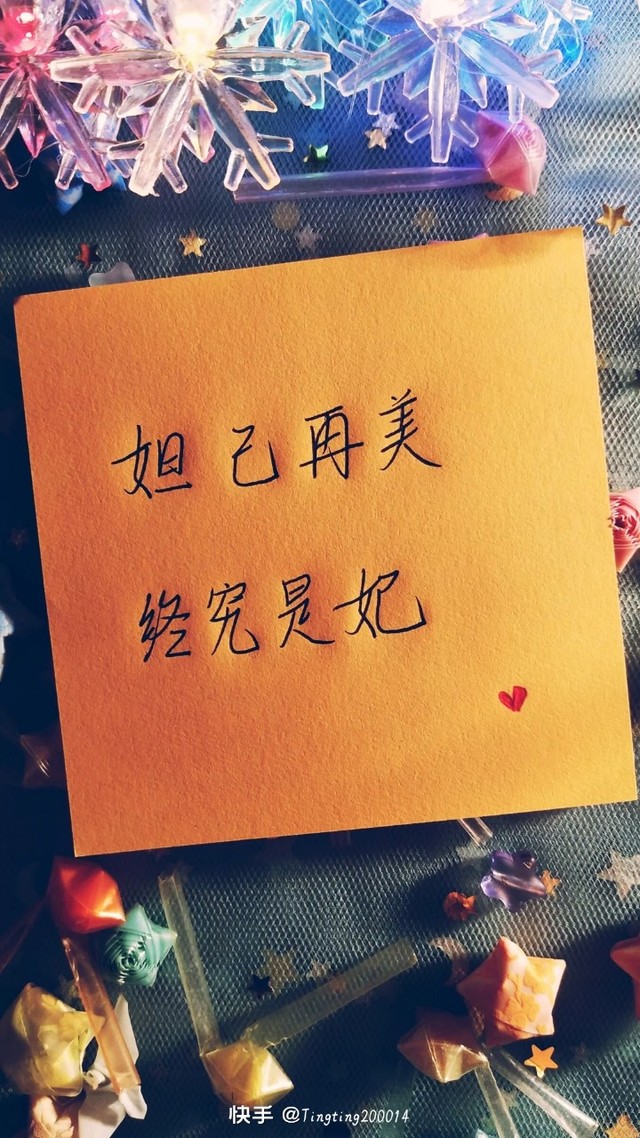 妲己再美
终究是妃
快手 @Tingting200014